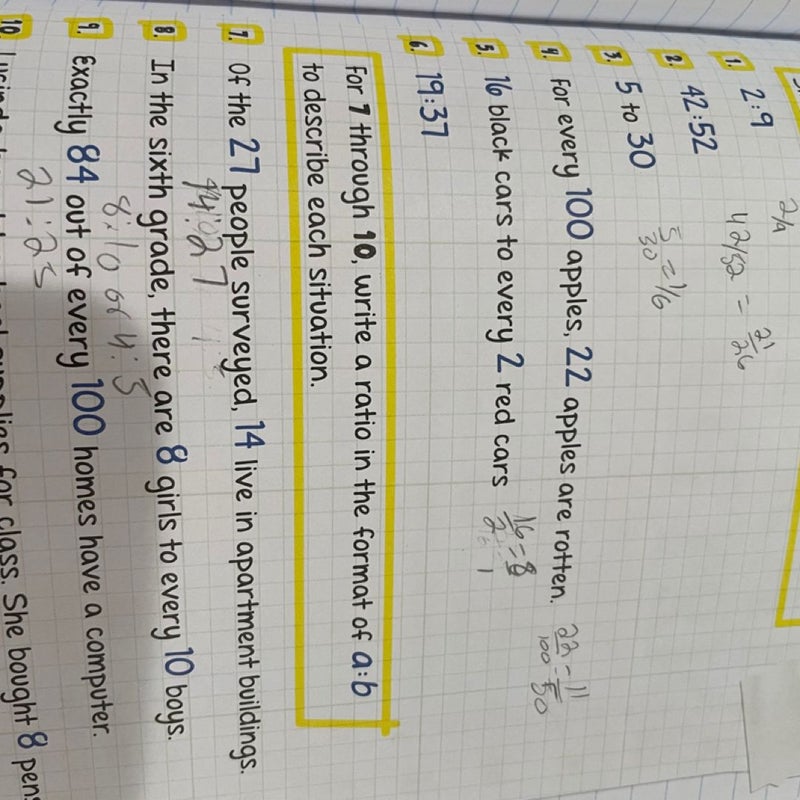 1. 2:9 2/9
2. 42:52 42/52 = 21/26
3. 5 to 30 5/30 = 1/6
4. For every 100 apples, 22 apples are rotten. 22/100 = 11/50
5. 16 black cars to every 2 red cars 16/2 = 8/1
6. 19:37
For 7 through 10, write a ratio in the format of a:b
to describe each situation.
7. Of the 27 people surveyed, 14 live in apartment buildings.
14:27
8. In the sixth grade, there are 8 girls to every 10 boys.
8:10 or 4:5
9. Exactly 84 out of every 100 homes have a computer.
21:25
10. for class. She bought 8 pens